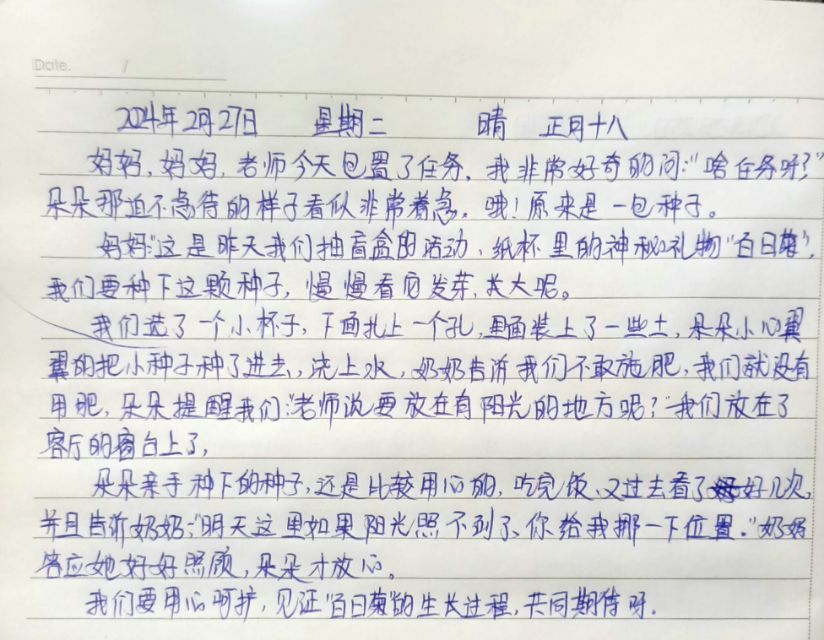 Date. /
2024年2月27日 星期二 晴 正月十八
妈妈,妈妈,老师今天包置了任务,我非常好奇的问:"啥任务呀?"
朵朵那迫不急待的样子看似非常着急。哦!原来是一包种子。
妈妈:"这是昨天我们抽盲盒的活动、纸杯里的神秘礼物"百日菊",
我们要种下这颗种子,慢慢看向发芽、长大呢。
我们选了一个小杯子,下面扎上一个孔,里面装上了一些土,朵朵小心翼
翼的把小种子种了进去,浇上水,奶奶告诉我们不敢施肥,我们就没有
用肥,朵朵提醒我们:"老师说要放在有阳光的地方呢?"我们放在了
客厅的窗台上了,
朵朵亲手种下的种子,还是比较用心的,吃完饭、又过去看了好几次,
并且告诉奶奶:"明天这里如果阳光照不到了、你给我挪一下位置。"奶奶
答应她好好照顾,朵朵才放心。
我们要用心呵护,见证"百日菊"的生长过程,共同期待呀.